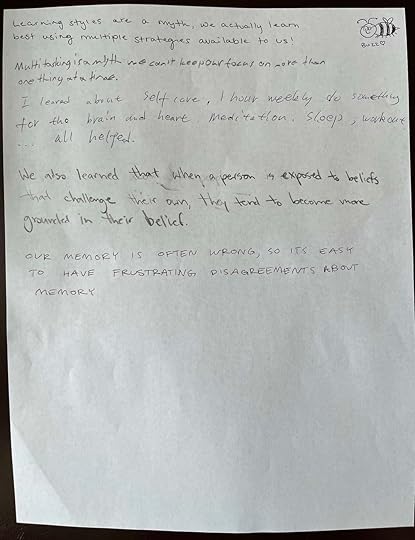 Learning styles are a myth, we actually learn
best using multiple strategies available to us!
BUZZ♡
Multitasking is a myth we can't keep our focus on more than
one thing at a time.
I learned about Self care, 1 hour weekly do something
for the brain and heart. Meditation. Sleep, workout
... all helped.
We also learned that when a person is exposed to beliefs
that challenge their own, they tend to become more
grounded in their belief.
OUR MEMORY IS OFTEN WRONG, SO ITS EASY
TO HAVE FRUSTRATING DISAGREEMENTS ABOUT
MEMORY